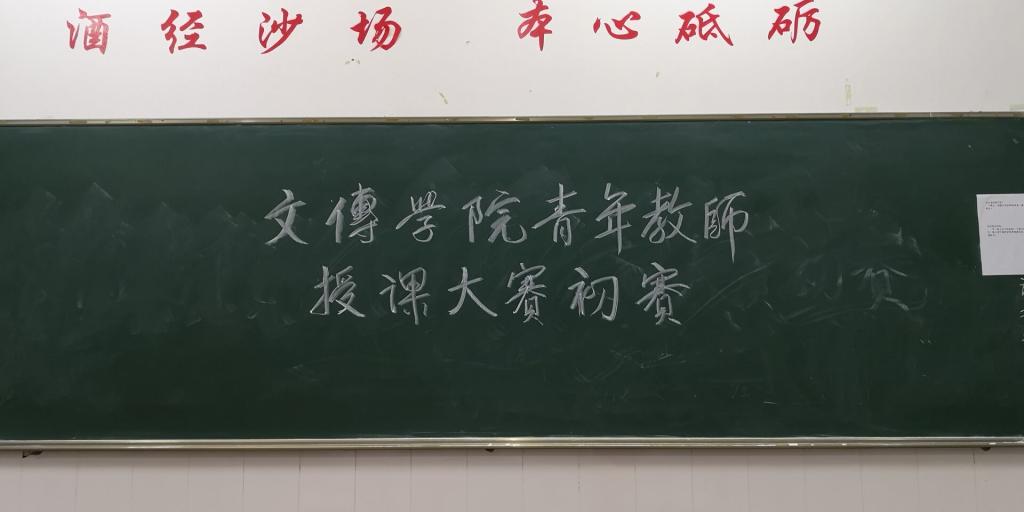 酒经沙场 本心砥砺
文傳學院青年教師
授课大赛初赛